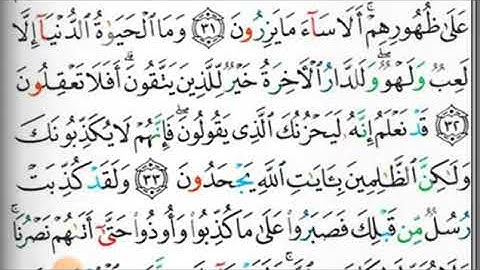 عَلَىٰ ظُهُورِهِمْ ۚ أَلَا سَآءَ مَا يَزِرُونَ ٣١ وَمَا ٱلْحَيَوٰةُ ٱلدُّنْيَآ إِلَّا
لَعِبٌ وَلَهْوٌ ۖ وَلَلدَّارُ ٱلْأَخِرَةُ خَيْرٌ لِّلَّذِينَ يَتَّقُونَ ۗ أَفَلَا تَعْقِلُونَ
٣٢ قَدْ نَعْلَمُ إِنَّهُۥ لَيَحْزُنُكَ ٱلَّذِى يَقُولُونَ ۖ فَإِنَّهُمْ لَا يُكَذِّبُونَكَ
وَلَٰكِنَّ ٱلظَّٰلِمِينَ بِـَٔايَٰتِ ٱللَّهِ يَجْحَدُونَ ٣٣ وَلَقَدْ كُذِّبَتْ
رُسُلٌ مِّن قَبْلِكَ فَصَبَرُوا۟ عَلَىٰ مَا كُذِّبُوا۟ وَأُوذُوا۟ حَتَّىٰٓ أَتَىٰهُمْ نَصْرُنَا ۚ